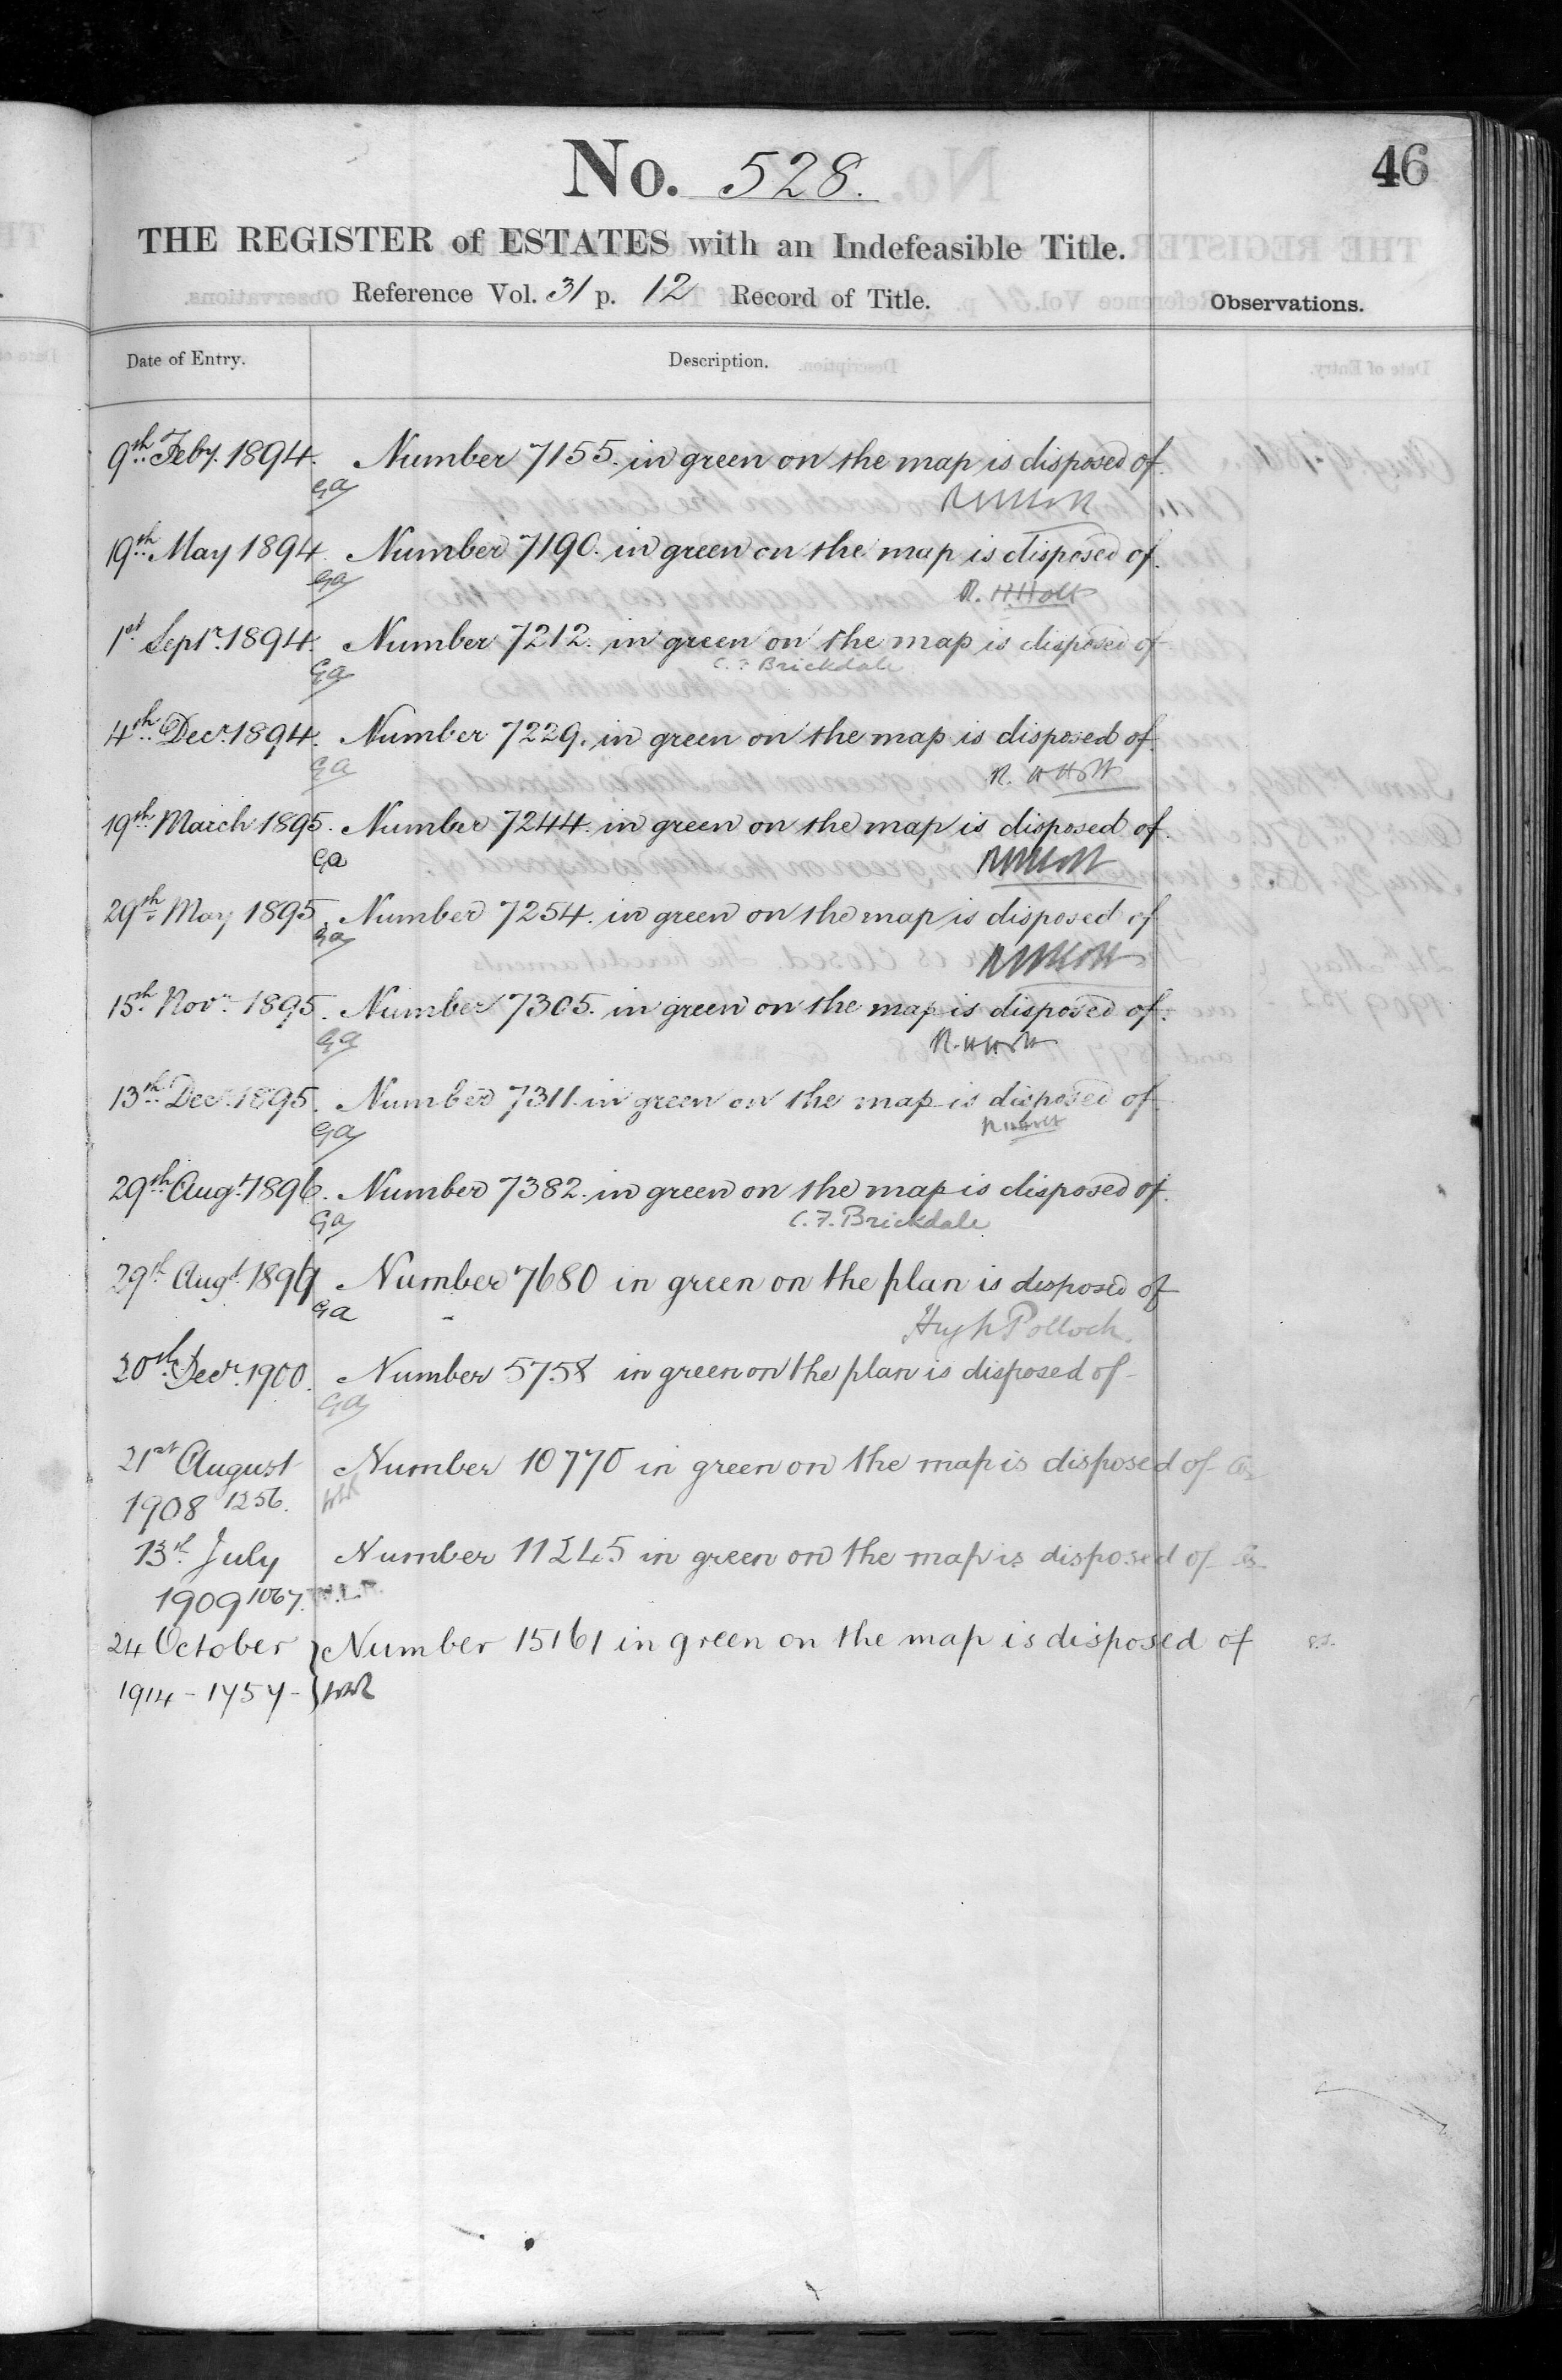 No. 528.
46
THE REGISTER of ESTATES with an Indefeasible Title.
Reference Vol. 31 p. 12 Record of Title.
Observations.
Date of Entry.
Description.
9th Feby. 1894. Number 7155. in green on the map is disposed of.
GA
19th May 1894. Number 7190. in green on the map is disposed of.
GA R. H Holt
1st Septr. 1894. Number 7212. in green on the map is disposed of
GA C. F. Brickdale
4th Decr. 1894. Number 7229. in green on the map is disposed of.
GA R. H Holt
19th March 1895. Number 7244. in green on the map is disposed of.
GA R H Holt
29th May 1895. Number 7254. in green on the map is disposed of
GA R H Holt
15th Novr. 1895. Number 7305. in green on the map is disposed of.
GA R. H Holt
13th Decr. 1895. Number 7311. in green on the map is disposed of.
GA R H Holt
29th Augt. 1896. Number 7382. in green on the map is disposed of.
GA C. F. Brickdale
29th Augt. 1899 Number 7680 in green on the plan is disposed of
GA Hugh Pollock.
20th Decr. 1900. Number 5758 in green on the plan is disposed of
GA
21st August Number 10770 in green on the map is disposed of
1908 1256.
13th July Number 11245 in green on the map is disposed of
1909 1067.
24 October Number 15161 in green on the map is disposed of
1914 - 1757 -